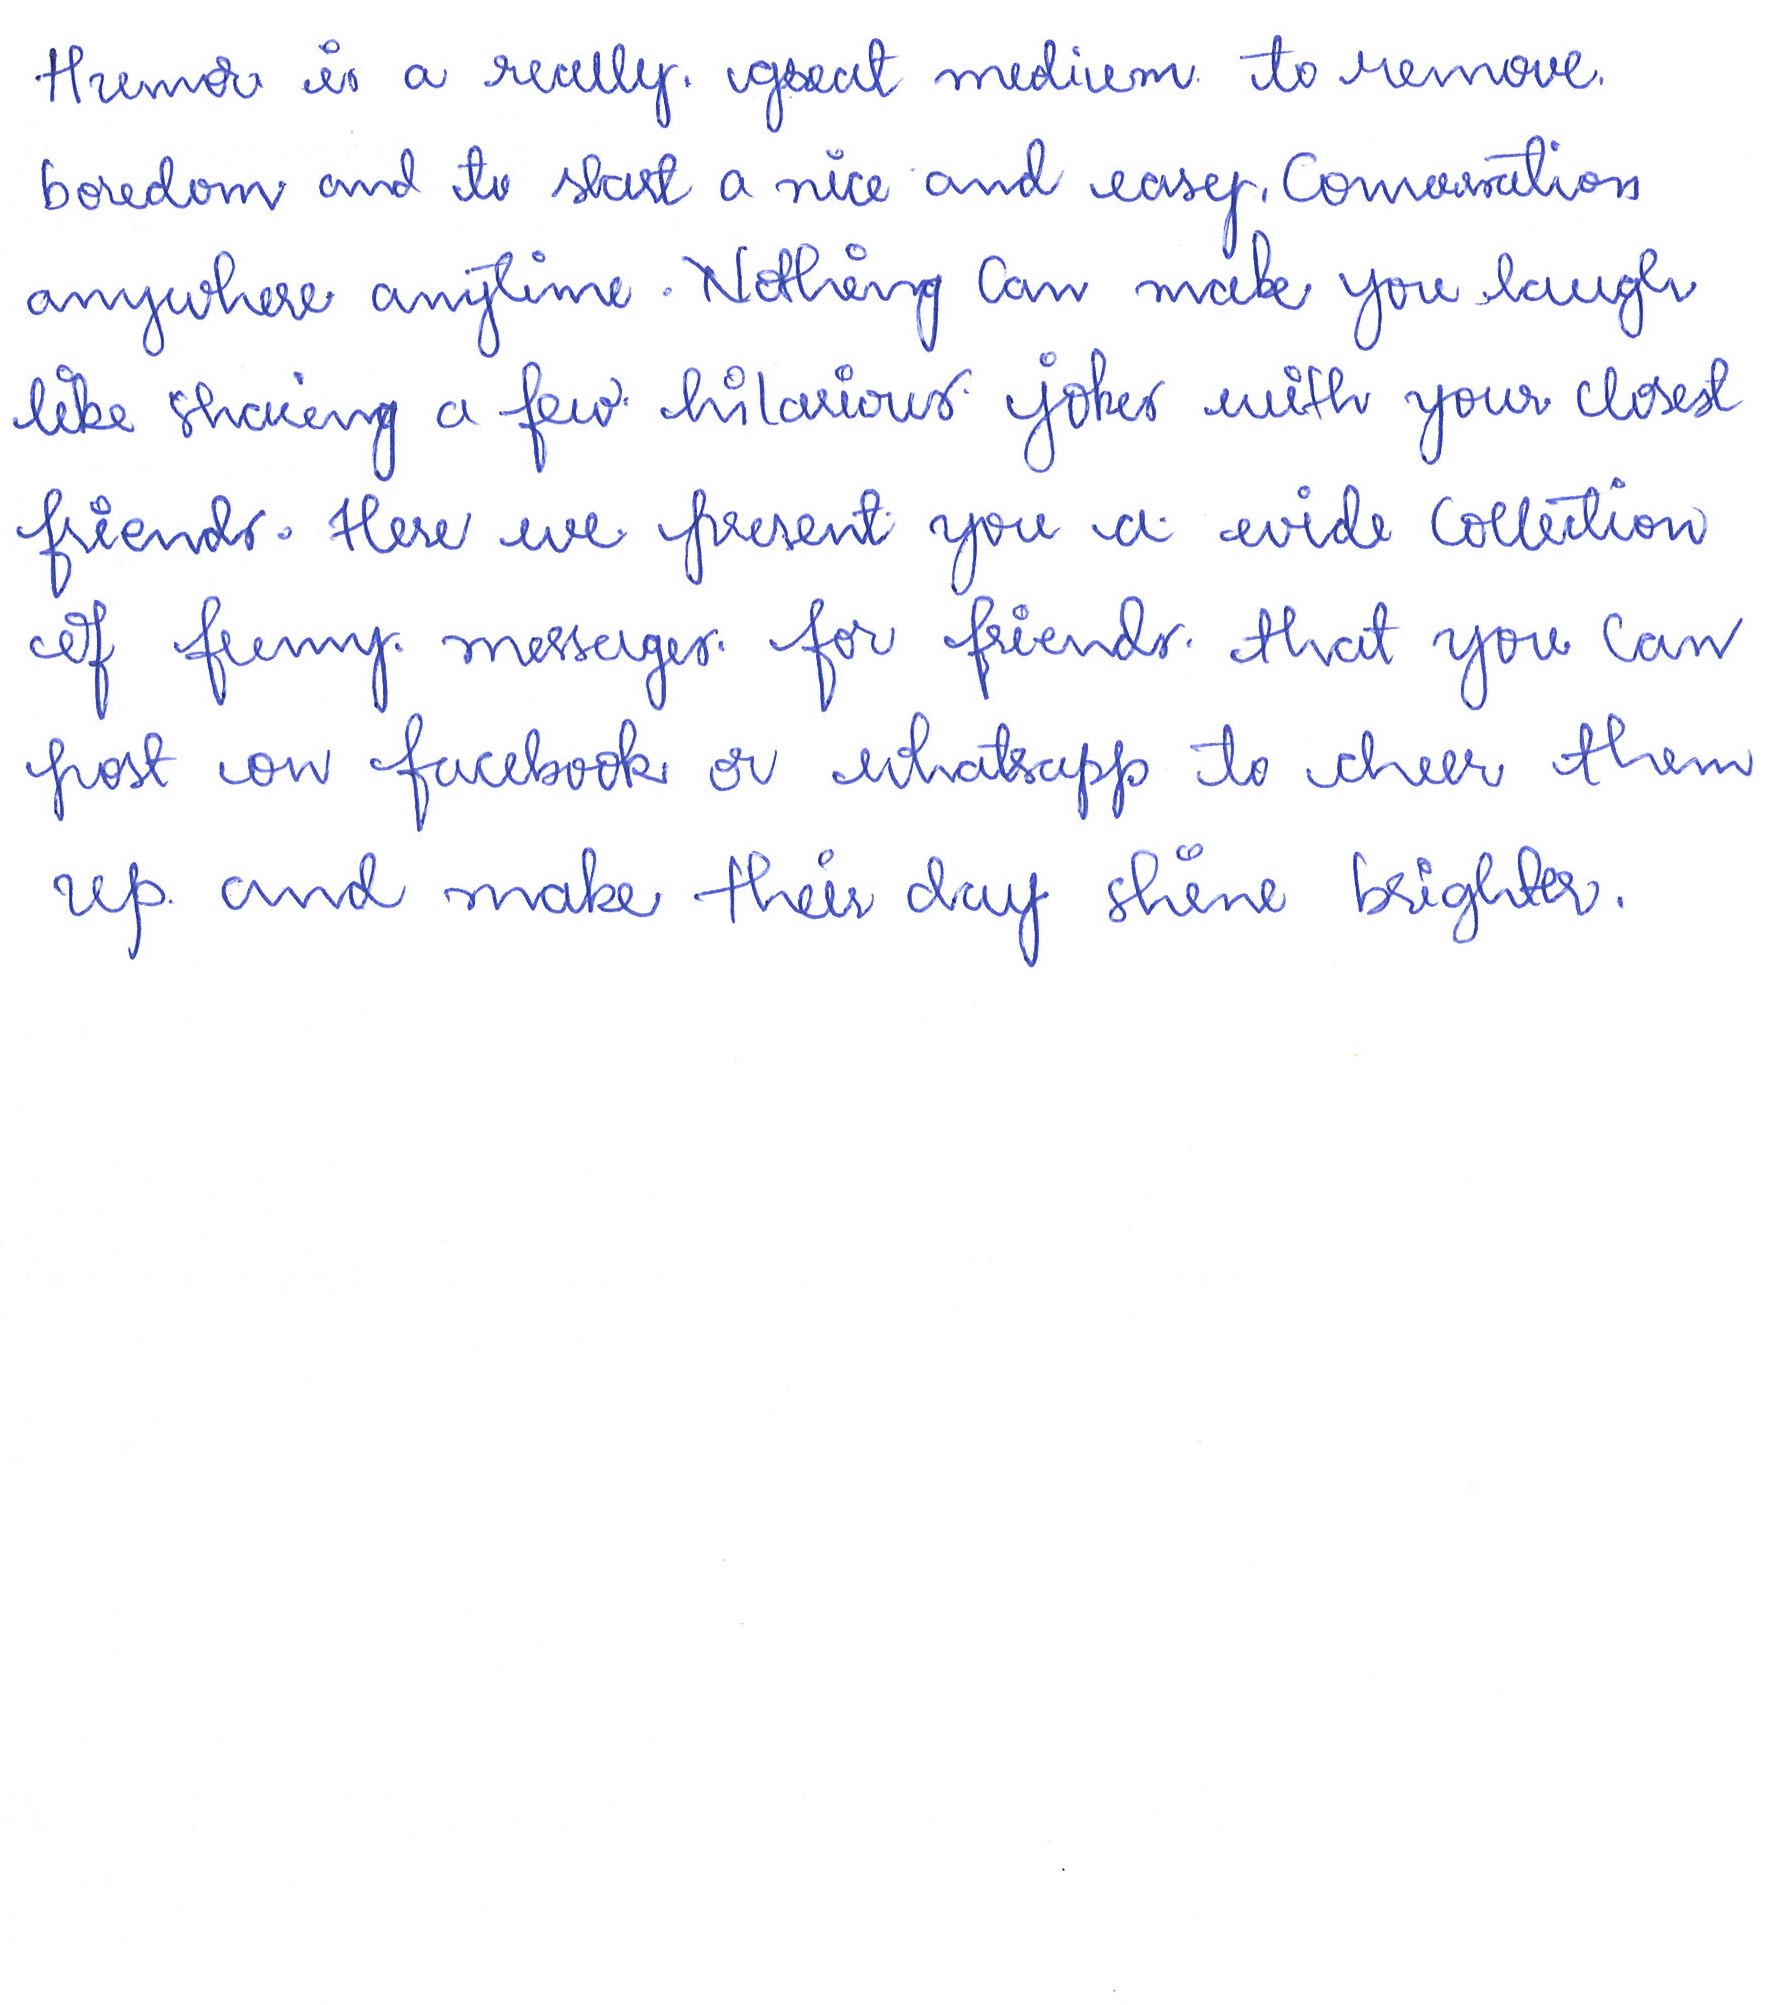 Humor is a really great medium to remove
boredom and to start a nice and easy Conversation
anywhere anytime. Nothing Can make you laugh
like sharing a few hilarious jokes with your closest
friends. Here we present you a wide Collection
of funny messages for friends that you Can
post on facebook or whatsapp to cheer them
up and make their day shine brighter.